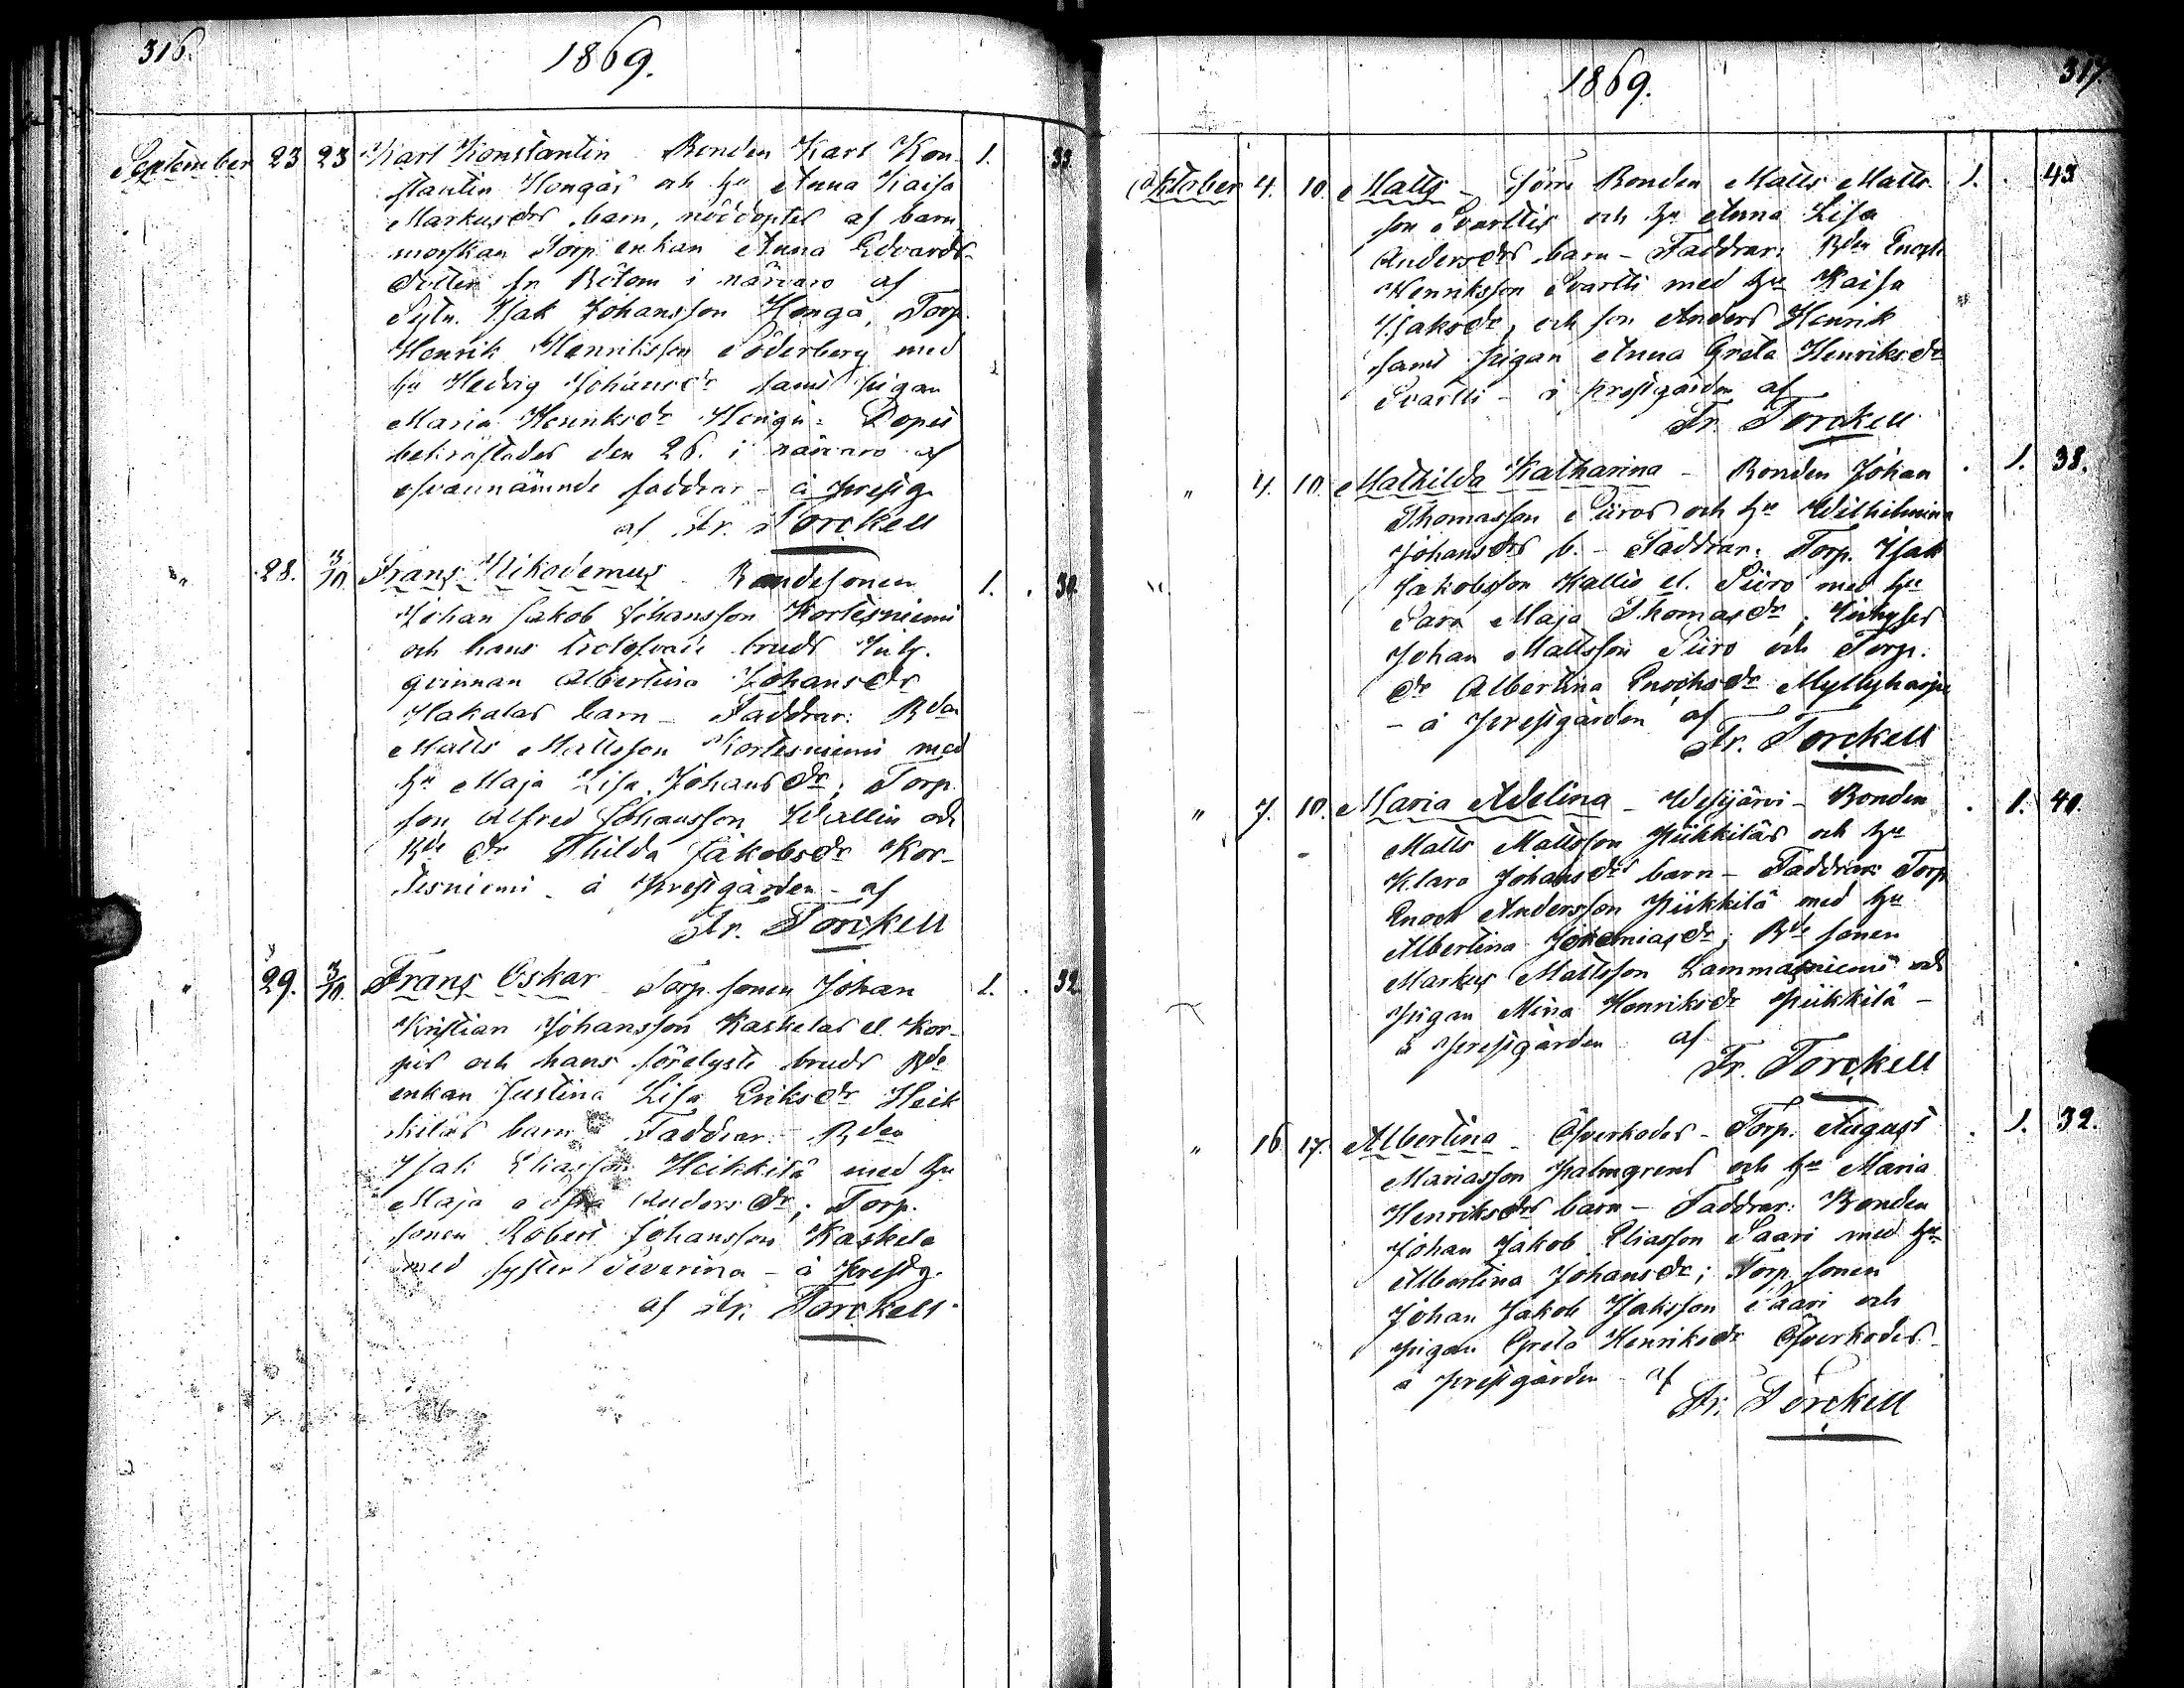 316.
1869.
September 23 23 Karl Konstantin Bonden Karl Kon- 1. 33
stantin Hongas och hu Anna Kaisa
Markusdrs barn, nöddöptes af barn
morskan Torp enkan Anna Edvards-
dotter fr. Rötom i närvaro af
Sytn. Isak Johansson Honga, Torp.
Henrik Henriksson Söderberg med
hu Hedvig Johansdr samt pigan
Maria Henriksdr Honga: Dopet
bekräftades den 26. i närvaro af
ofvannämnde faddrar - å prestg.
af Fr. Torckell
" 28. 3/10. Frans Nikodemus Bondesonen 1. . 30.
Johan Jakob Johansson Kortesniemi
och hans trolofvade bruds Inh.
qvinnan Albertina Johansdr
Hakalas barn - Faddrar: Bden
Matts Mattsson Kortesniemi med
hu Maja Lisa Johansdr; Torp.
son Alfred Johansson Wallin och
Bde dr Thilda Jakobsdr Kor-
tesniemi - å prestgården - af
Fr. Torckell
" 29. 3/10. Frans Oskar - Torp. sonen Johan 1. . 32
Kristian Johansson Kaskelas el. Kor-
pis och hans förelyste bruds Bde
enkan Justina Lisa Eriksdr Heik
kiläs barn - Faddrar: Bden
Isak Eliasson Heikkilä med hu
Maja Andersdr; Torp.
sonen Robert Johansson Kaskela
med syster Severina - å prestg.
af Fr. Torckell
317.
1869.
Oktober 4. 10. Matts - Förre Bonden Matts Matts- 1. . 43
son Svarttis och hu Anna Lisa
Andersdrs barn - Faddrar: Bden Enoch
Henriksson Svartti med hu Kaisa
Isaksdr, och son Anders Henrik
samt pigan Anna Greta Henriksdr
Svartti - å prestgården af
Fr. Torckell
" 4. 10. Mathilda Katharina - Bonden Johan . 1. 38.
Thomasson Piiros och hu Wilhelmina
Johansdrs b. - Faddrar: Torp. Isak
Jakobsson Kallio el. Piiro med hu
Sara Maja Thomasdr; Inhyses
Johan Mattsson Piiro och Torp.
dr Albertina Enochsdr Myllyharju
- å prestgården af
Fr. Torckell
" 7. 10. Maria Adelina - Wesijärvi - Bonden . 1. 40.
Matts Mattsson Pükkiläs och hu
Klara Johansdrs barn - Faddrar: Torp
Enoch Andersson Pükkilä med hu
Albertina Jeremiasdr; Bde sonen
Markus Mattsson Lammasniemi och
pigan Mina Henriksdr Pükkilä -
å prestgården af
Fr. Torckell
" 16 17. Albertina - Öfverkodes - Torp. August . 1. 32.
Mariasson Palmgrens och hu Maria
Henriksdrs barn - Faddrar: Bonden
Johan Jakob Eliasson Saari med hu
Albertina Johansdr; Torp. sonen
Johan Jakob Isaksson Saari och
pigan Greta Henriksdr Öfverkodes
å prestgården - af
Fr. Torckell